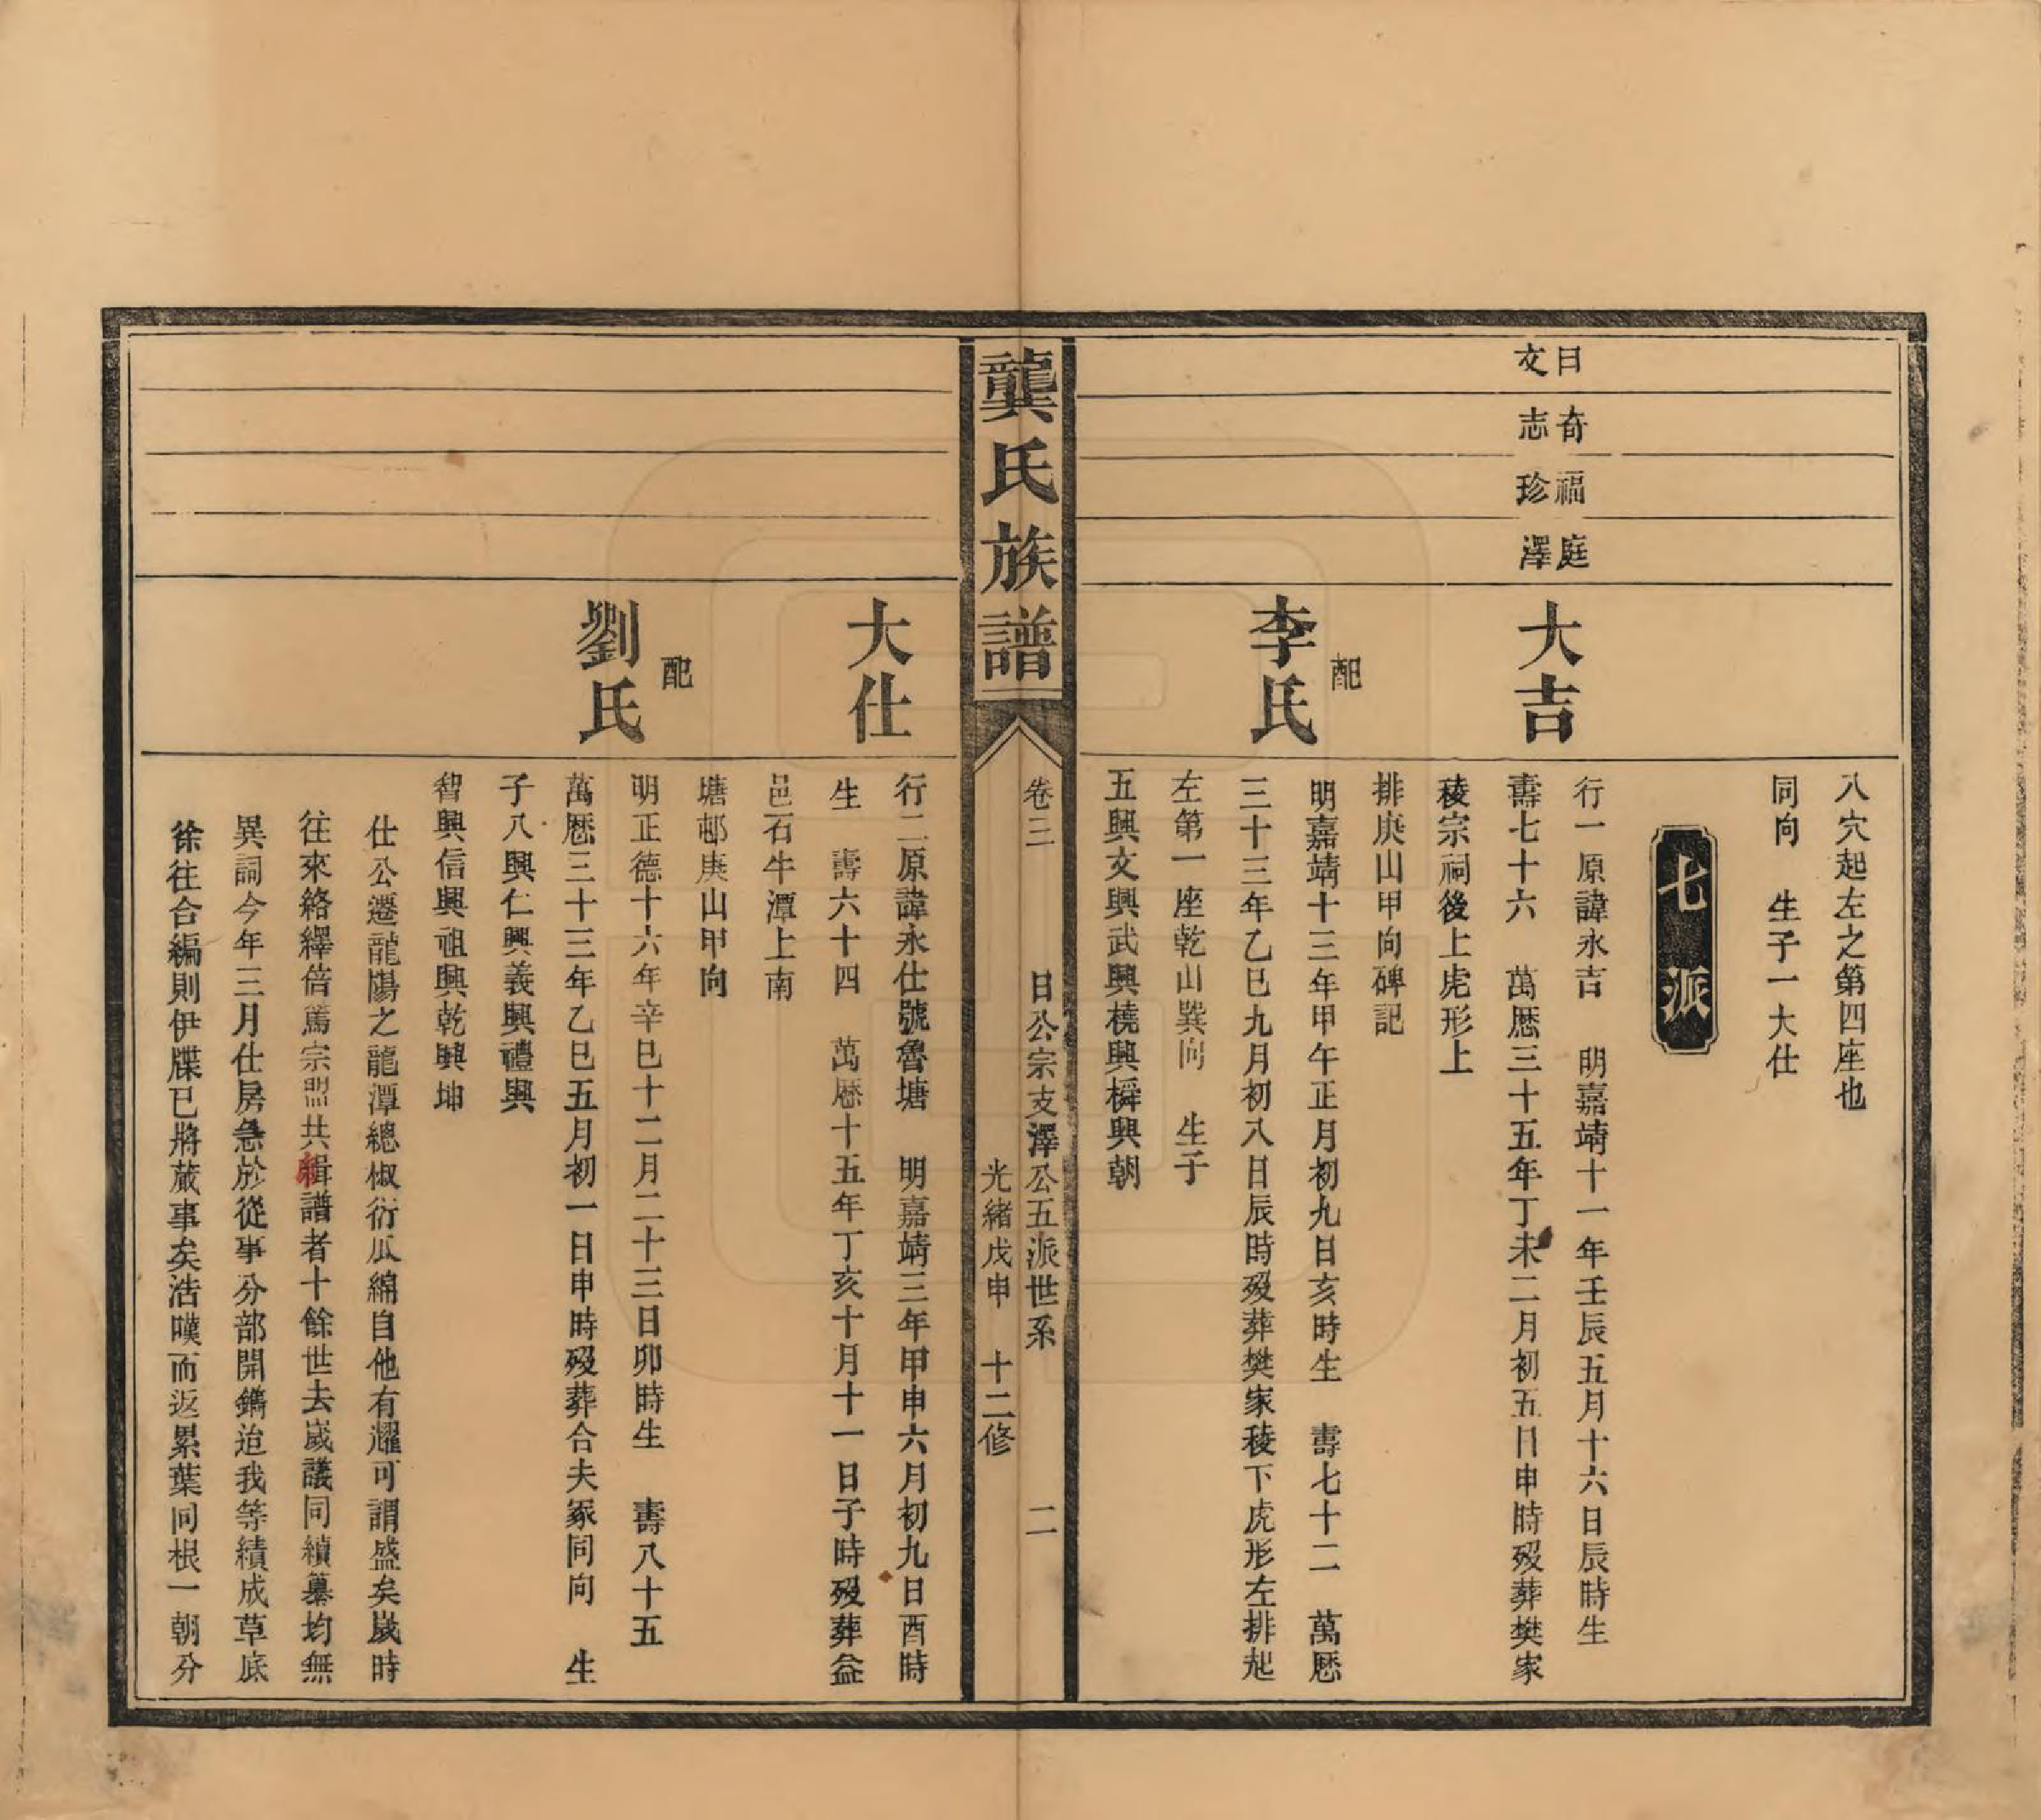 八穴起左之第四座也
同向　生子一大仕
七派
曰　奇　福　庭
文　志　珍　澤
大吉
行一原諱永吉　明嘉靖十一年壬辰五月十六日辰時生
壽七十六　萬曆三十五年丁未二月初五日申時歿葬樊家
稜宗祠後上虎形上
排庚山甲向碑記
配
李氏
明嘉靖十三年甲午正月初九日亥時生　壽七十二　萬曆
三十三年乙巳九月初八日辰時歿葬樊家稜下虎形左排起
左第一座乾山巽向　生子
五興文興武興橈興橓興朝
龔氏族譜
卷三　曰公宗支澤公五派世系　二
光緒戊申　十二修
大仕
行二原諱永仕號魯塘　明嘉靖三年甲申六月初九日酉時
生　壽六十四　萬曆十五年丁亥十月十一日子時歿葬益
邑石牛潭上南
塘邨庚山甲向
配
劉氏
明正德十六年辛巳十二月二十三日卯時生　壽八十五
萬曆三十三年乙巳五月初一日申時歿葬合夫冢同向　生
子八興仁興義興禮興
智興信興祖興乾興坤
仕公遷龍陽之龍潭總椒衍瓜綿自他有耀可謂盛矣歲時
往來絡繹倍篤宗盟共輯譜者十餘世去歲議同續纂均無
異詞今年三月仕房急於從事分部開鐫迨我等績成草底
徐往合編則伊牒已將蕆事矣浩嘆而返累葉同根一朝分